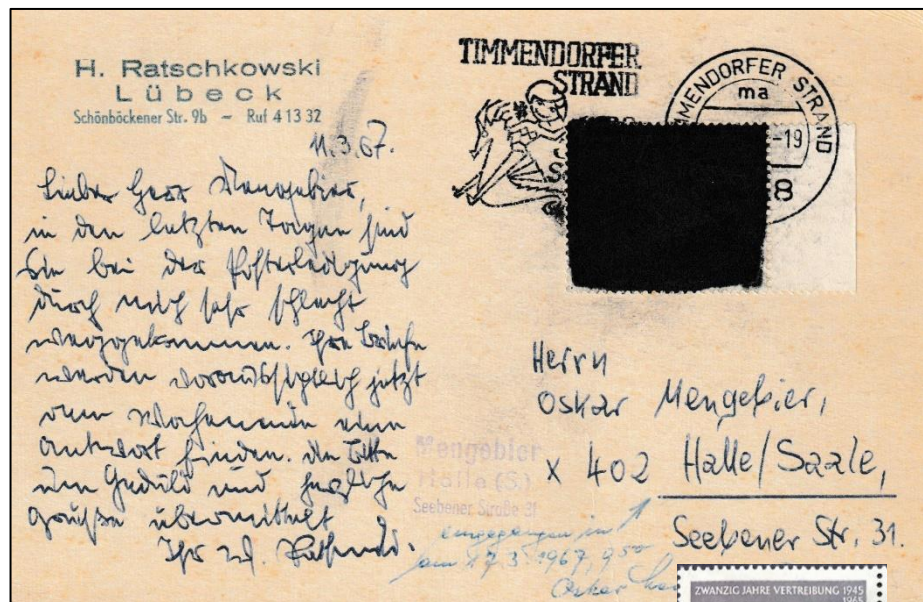 H. Ratschkowski
Lübeck
Schönböckener Str. 9b – Ruf 4 13 32
11.3.67.
Lieber Herr Mengebier,
in den letzten Tagen sind
Sie bei der Posterledigung
durch mich sehr schlecht
weggekommen. Ihre Briefe
werden voraussichtlich jetzt
am Wochenende eine
Antwort finden. Um Bitte
um Geduld und herzliche
Grüße übermittelt
Ihr
TIMMENDORFER
STRAND
TIMMENDORFER STRAND
ma
-19
8
Herrn
Oskar Mengebier,
X 402 Halle/Saale,
Seebener Str. 31.
Mengebier
Halle (S.)
Seebener Straße 31
eingegangen in ↑
am 17.3.1967, 9.50
Oskar
ZWANZIG JAHRE VERTREIBUNG 1945
1965